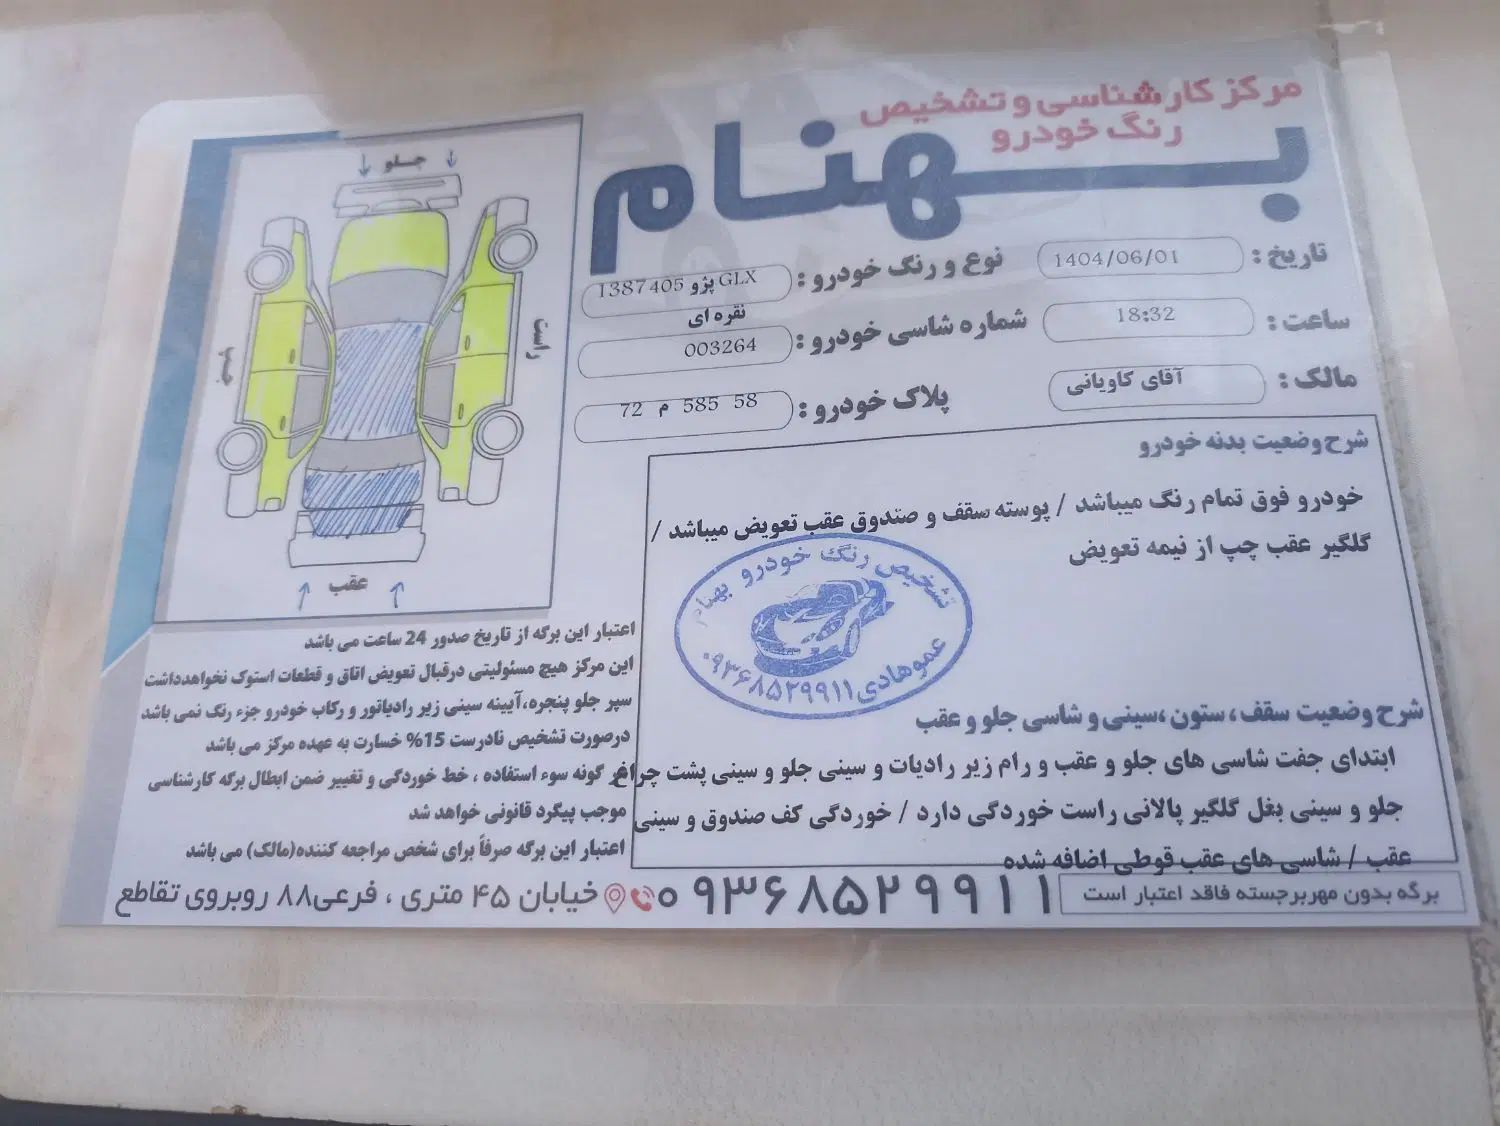 مرکز کارشناسی و تشخیص
رنگ خودرو
بهنام
تاریخ : 1404/06/01
نوع و رنگ خودرو : 1387 405 پژو GLX
نقره ای
ساعت : 18:32
شماره شاسی خودرو : 003264
مالک : آقای کاویانی
پلاک خودرو : 72 م 585 58
شرح وضعیت بدنه خودرو
خودرو فوق تمام رنگ میباشد / پوسته سقف و صندوق عقب تعویض میباشد /
گلگیر عقب چپ از نیمه تعویض
تشخیص رنگ خودرو بهنام
عموهادی ۰۹۳۶۸۵۲۹۹۱۱
شرح وضعیت سقف، ستون ،سینی و شاسی جلو و عقب
ابتدای جفت شاسی های جلو و عقب و رام زیر رادیات و سینی جلو و سینی پشت چراغ
جلو و سینی بغل گلگیر پالانی راست خوردگی دارد / خوردگی کف صندوق و سینی
عقب / شاسی های عقب قوطی اضافه شده
جلو
راست
چپ
عقب
اعتبار این برگه از تاریخ صدور 24 ساعت می باشد
این مرکز هیچ مسئولیتی درقبال تعویض اتاق و قطعات استوک نخواهدداشت
سپر جلو پنجره،آیینه سینی زیر رادیاتور و رکاب خودرو جزء رنگ نمی باشد
درصورت تشخیص نادرست 15% خسارت به عهده مرکز می باشد
هر گونه سوء استفاده ، خط خوردگی و تغییر ضمن ابطال برگه کارشناسی
موجب پیگرد قانونی خواهد شد
اعتبار این برگه صرفاً برای شخص مراجعه کننده(مالک) می باشد
برگه بدون مهر برجسته فاقد اعتبار است
۰۹۳۶۸۵۲۹۹۱۱
خیابان ۴۵ متری ، فرعی۸۸ روبروی تقاطع